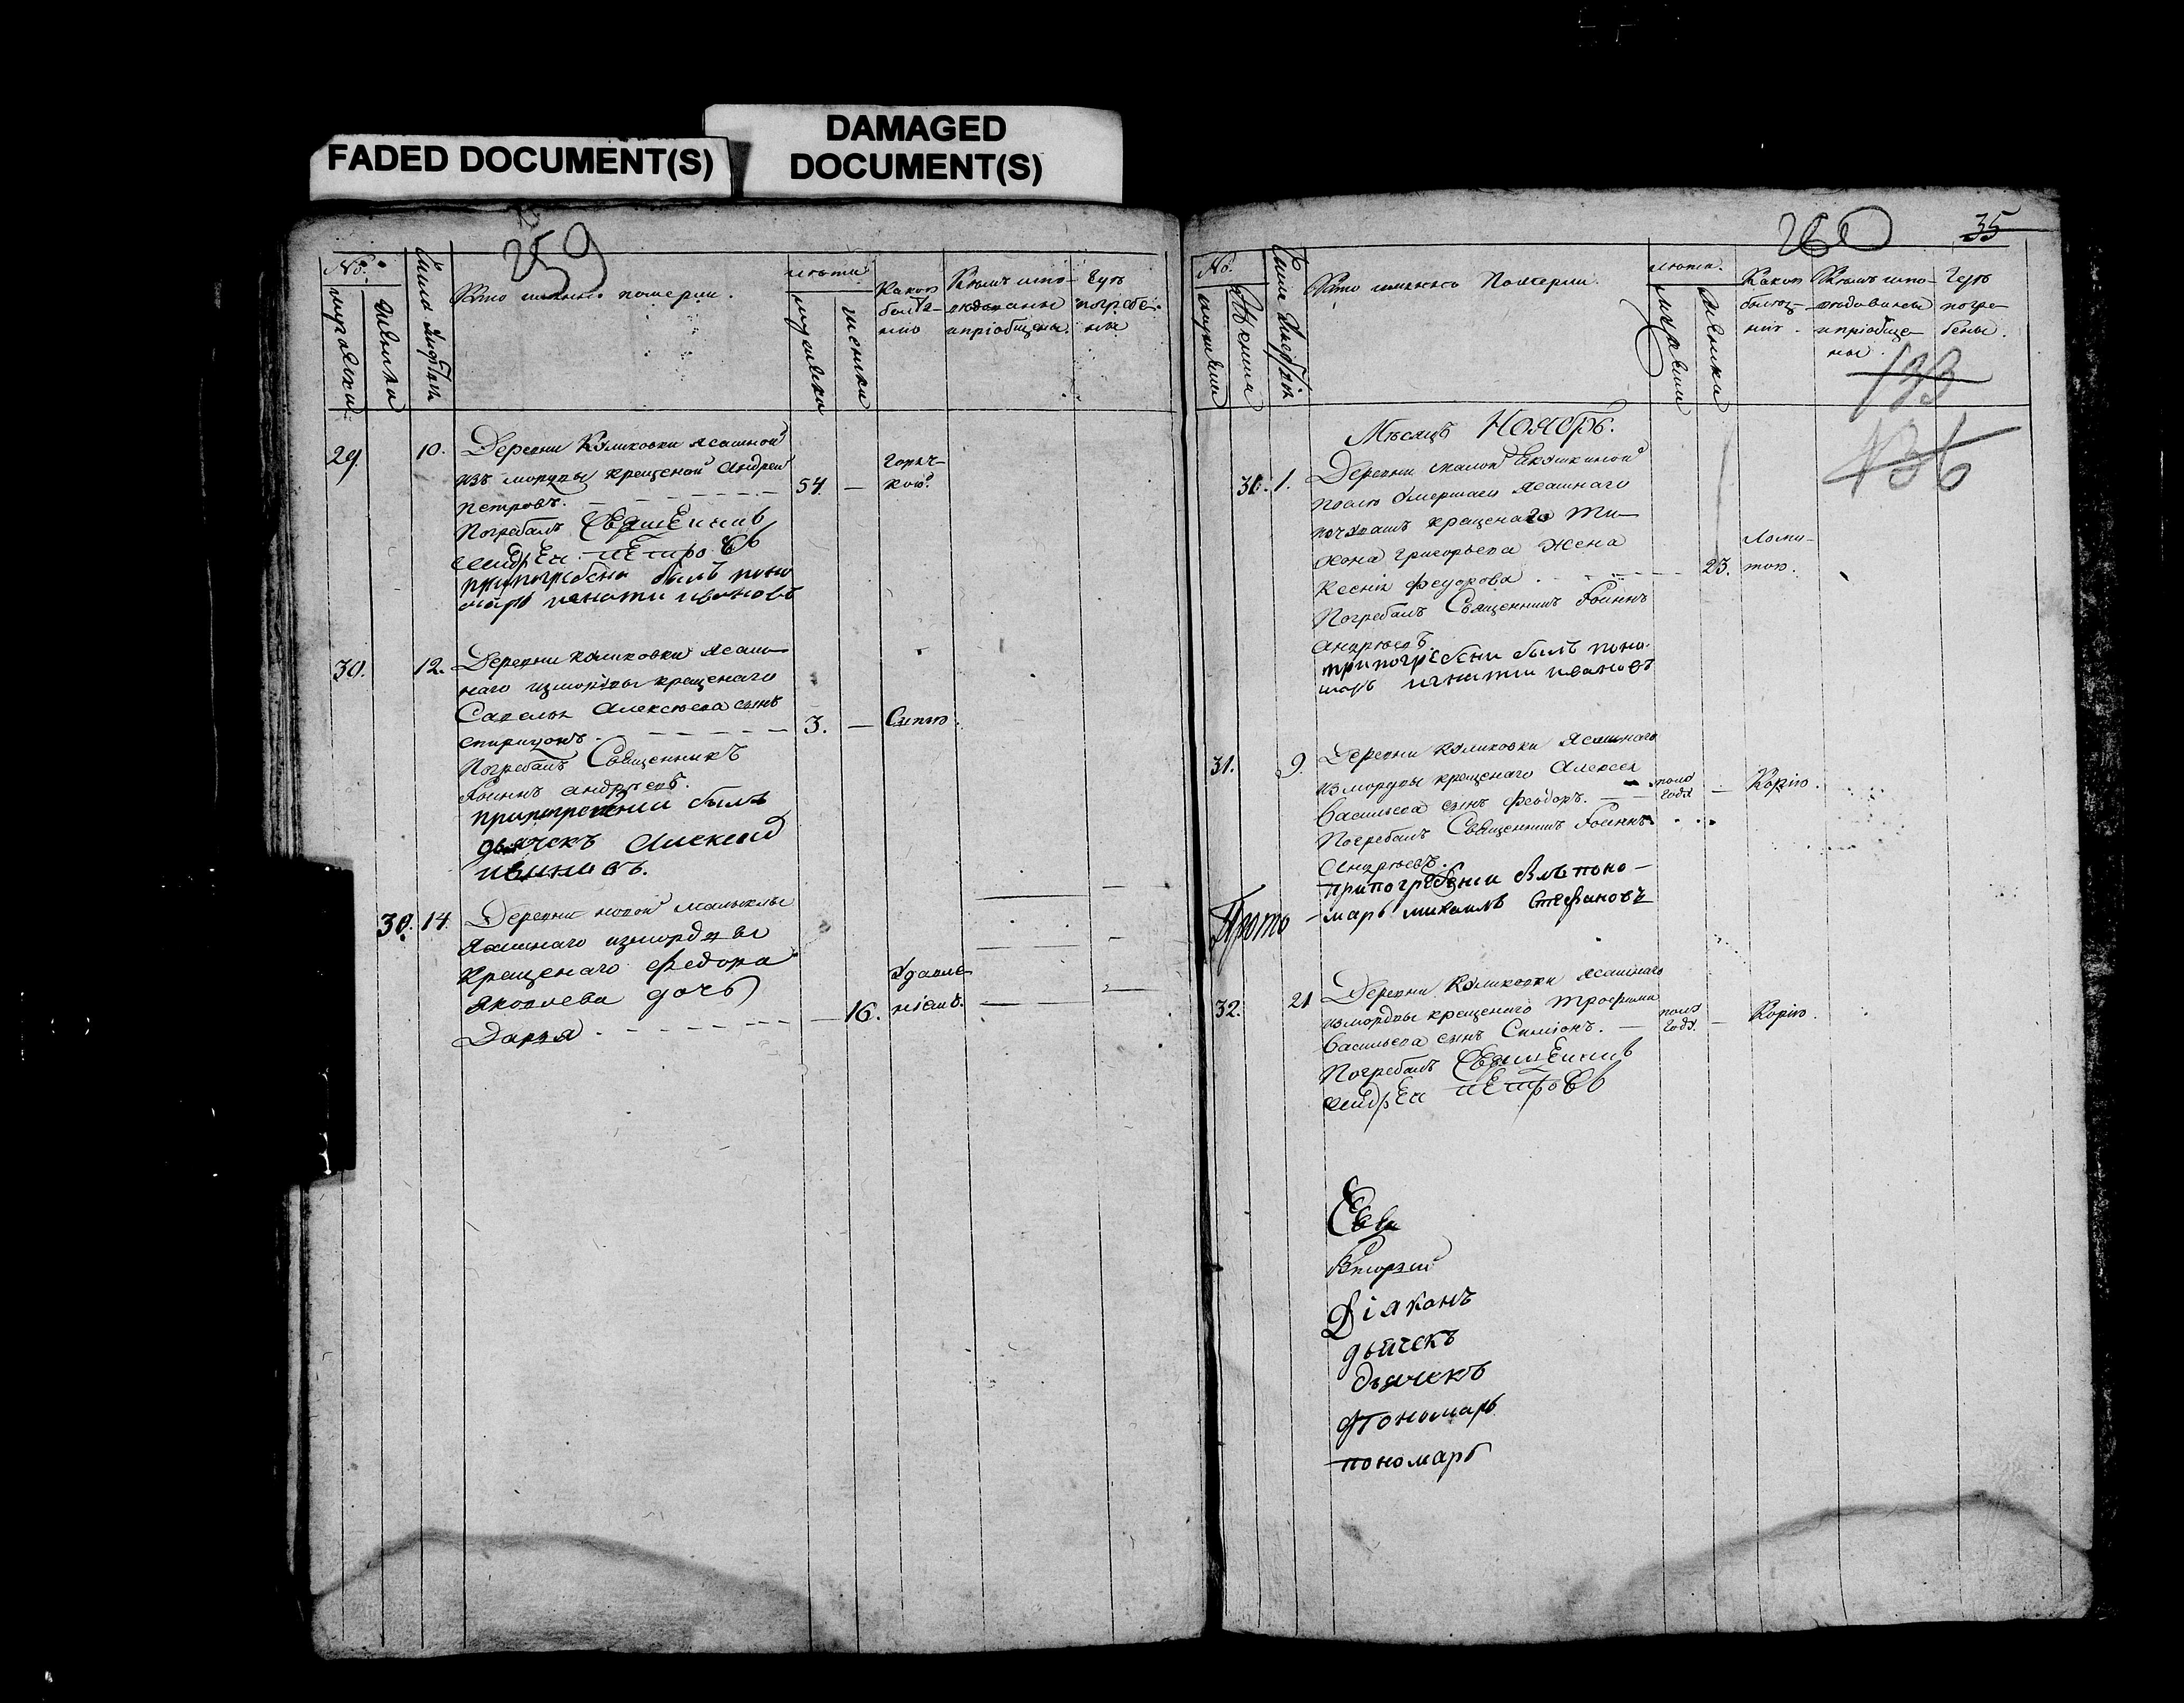 FADED DOCUMENT(S)
DAMAGED
DOCUMENT(S)
259
№.
мужеска
женска
Числа
Кто имянно померли.
лѣта
мужеска
женска
Какою
болѣз-
нію
Кѣмъ испо-
вѣдованы
и пріобщены
Гдѣ
погребе-
ны
29.
10.
Деревни Куликовки ясашной
изъ мордвы крещеной Андрей
Петровъ.
54.
Горяч-
кою.
Погребалъ Священникъ
Андрей Петровъ
при погребени былъ поно
марь игнати ивановъ
30.
12.
Деревни Куликовки ясаш-
наго из мордвы крещенаго
Савелья Алексѣева сынъ
Спиридонъ.
3.
Сыпью.
Погребалъ Священникъ
Іоаннъ Андрѣевъ.
при погребении былъ
дьячекъ Алексей
ивановъ.
30.
14.
Деревни новой Малыклы
ясашнаго из мордвы
крещенаго Федора
Яковлева дочь
Дарья
16.
Удавле-
ніемъ.
260
35
№.
мужеска
женска
Кто имянно Померли.
лѣта.
мужеска
женска
Какою
болѣз-
нію.
Кѣмъ испо-
вѣдованы
и пріобще-
ны.
Гдѣ
погре-
бены.
133
136
Мѣсяцъ Ноябрь.
31.
1.
Деревни малой Якушкиной
послѣ умершаго ясашнаго
изъ чувашъ крещенаго Ти-
хона Григорьева жена
Ксенія Федорова
23.
Ломо-
тою.
Погребалъ Священникъ Іоаннъ
Андрѣевъ.
при погребени былъ поно-
марь игнати ивановъ
31.
9.
Деревни Куликовки ясашнаго
из мордвы крещенаго Алексея
Васильева сынъ Феодоръ.
полъ
года
Корью.
Погребалъ Священникъ Іоаннъ
Андрѣевъ.
при погребени былъ поно-
марь михаилъ Стефановъ
Прото
32.
21
Деревни Куликовки ясашнаго
из мордвы крещенаго Трофима
Васильева сынъ Симіонъ.
полъ
года
Корью.
Погребалъ Священникъ
Андрей Петровъ
Діяконъ
дьячекъ
дьячекъ
Пономарь
пономарь